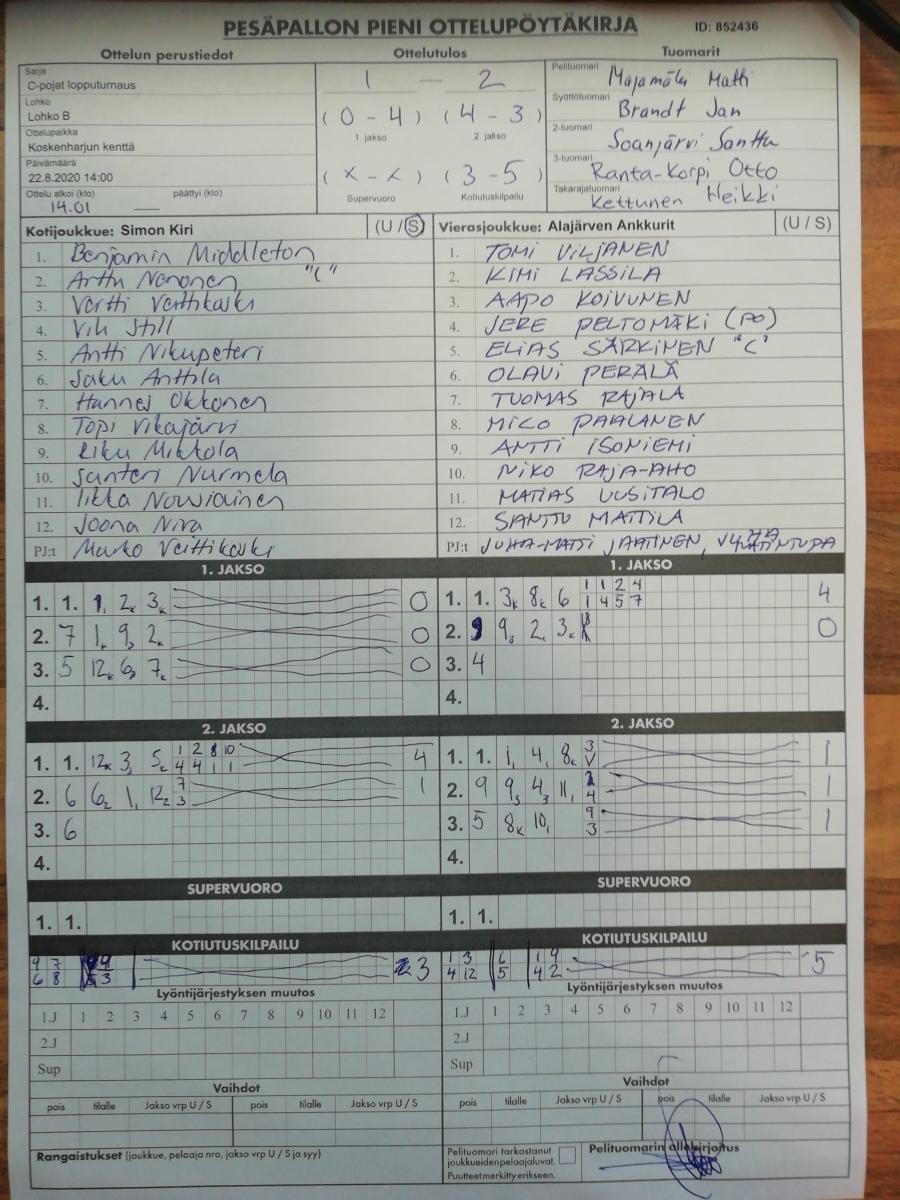 PESÄPALLON PIENI OTTELUPÖYTÄKIRJA ID: 852436
Ottelun perustiedot Ottelutulos Tuomarit
Sarja
C-pojat lopputurnaus
Lohko
Lohko B
Ottelupaikka
Koskenharjun kenttä
Päivämäärä
22.8.2020 14:00
Ottelu alkoi (klo) päättyi (klo)
14.01
1 – 2
(0 - 4) (4 - 3)
1. jakso 2. jakso
(x - x) (3 - 5)
Supervuoro Kotiutuskilpailu
Pelituomari Majamäki Matti
Syöttötuomari Brandt Jan
2-tuomari Soanjärvi Santtu
3-tuomari Ranta-Korpi Otto
Takarajatuomari Kettunen Heikki
Kotijoukkue: Simon Kiri (U / S)
1. Benjamin Middleton
2. Arttu Nenonen "C"
3. Vertti Veittikoski
4. Vili Still
5. Antti Nikupeteri
6. Saku Anttila
7. Hannes Okkonen
8. Topi Vikajärvi
9. Riku Mikkola
10. Santeri Nurmela
11. Iikka Nousiainen
12. Joona Niva
PJ:t Marko Veittikoski
Vierasjoukkue: Alajärven Ankkurit (U / S)
1. TOMI VILJANEN
2. KIMI LASSILA
3. AAPO KOIVUNEN
4. JERE PELTOMÄKI (PO)
5. ELIAS SÄRKINEN "C"
6. OLAVI PERÄLÄ
7. TUOMAS RAJALA
8. MICO PAALANEN
9. ANTTI ISONIEMI
10. NIKO RAJA-AHO
11. MATIAS UUSITALO
12. SANTTU MATTILA
PJ:t JUHA-MATTI JAATINEN,
1. JAKSO
1. 1. 1, 2k 3k 0
2. 7 1k 9, 2k 0
3. 5 12k 6, 7k 0
4.
1. JAKSO
1. 1. 3k 8k 6 1 1 2 4 4
1 4 5 7
2. 9 2, 3k 0
3. 4
4.
2. JAKSO
1. 1. 12k 3, 5k 1 2 8 10 4
4 4 1 1
2. 6 6 1, 12 7 1
3
3. 6
4.
2. JAKSO
1. 1. 1, 4, 8k 3 1
V
2. 9 9 4 11, 1
4
3. 5 8k 10, 9 1
3
4.
SUPERVUORO
1. 1.
SUPERVUORO
1. 1.
KOTIUTUSKILPAILU
9 7 9 3
6 8 3
KOTIUTUSKILPAILU
1 3 6 1 9 5
4 12 5 4 2
Lyöntijärjestyksen muutos
1.J 1 2 3 4 5 6 7 8 9 10 11 12
2.J
Sup
Lyöntijärjestyksen muutos
1.J 1 2 3 4 5 6 7 8 9 10 11 12
2.J
Sup
Vaihdot
pois tilalle Jakso vrp U / S pois tilalle Jakso vrp U / S
Vaihdot
pois tilalle Jakso vrp U / S pois tilalle Jakso vrp U / S
Rangaistukset (joukkue, pelaaja nro, jakso vrp U / S ja syy)
Pelituomari tarkastanut
joukkueidenpelaajaluvat.
Puutteet merkitty erikseen.
Pelituomarin allekirjoitus